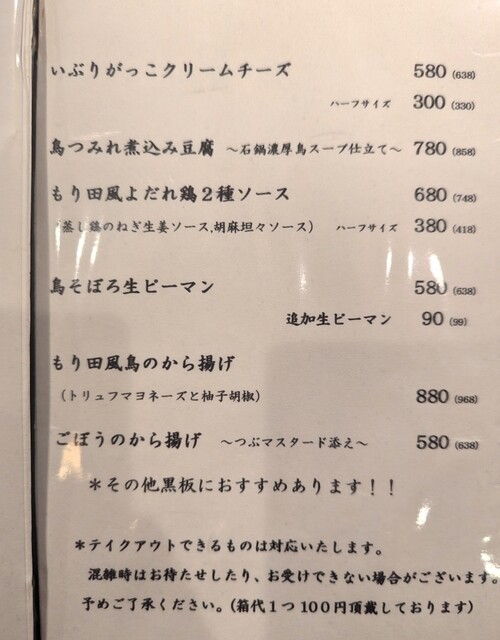 いぶりがっこクリームチーズ 580 (638)
ハーフサイズ 300 (330)
鳥つみれ煮込み豆腐 ～石鍋濃厚鳥スープ仕立て～ 780 (858)
もり田風よだれ鶏２種ソース 680 (748)
(蒸し鶏のねぎ生姜ソース,胡麻坦々ソース) ハーフサイズ 380 (418)
鳥そぼろ生ピーマン 580 (638)
追加生ピーマン 90 (99)
もり田風鳥のから揚げ
(トリュフマヨネーズと柚子胡椒) 880 (968)
ごぼうのから揚げ ～つぶマスタード添え～ 580 (638)
＊その他黒板におすすめあります！！
＊テイクアウトできるものは対応いたします。
混雑時はお待たせしたり、お受けできない場合がございます。
予めご了承ください。(箱代１つ100円頂戴しております)